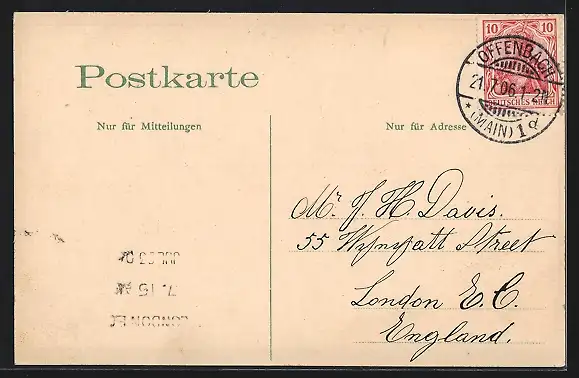 10 10
DEUTSCHES REICH
OFFENBACH
21.7.06.1-2N
* (MAIN) 1 d
Postkarte
Nur für Mitteilungen
Nur für Adresse
Mr. J. H. Davis.
55 Street
London E. C.
England.
LONDON EC
7. 15 AM
JUL 23 0